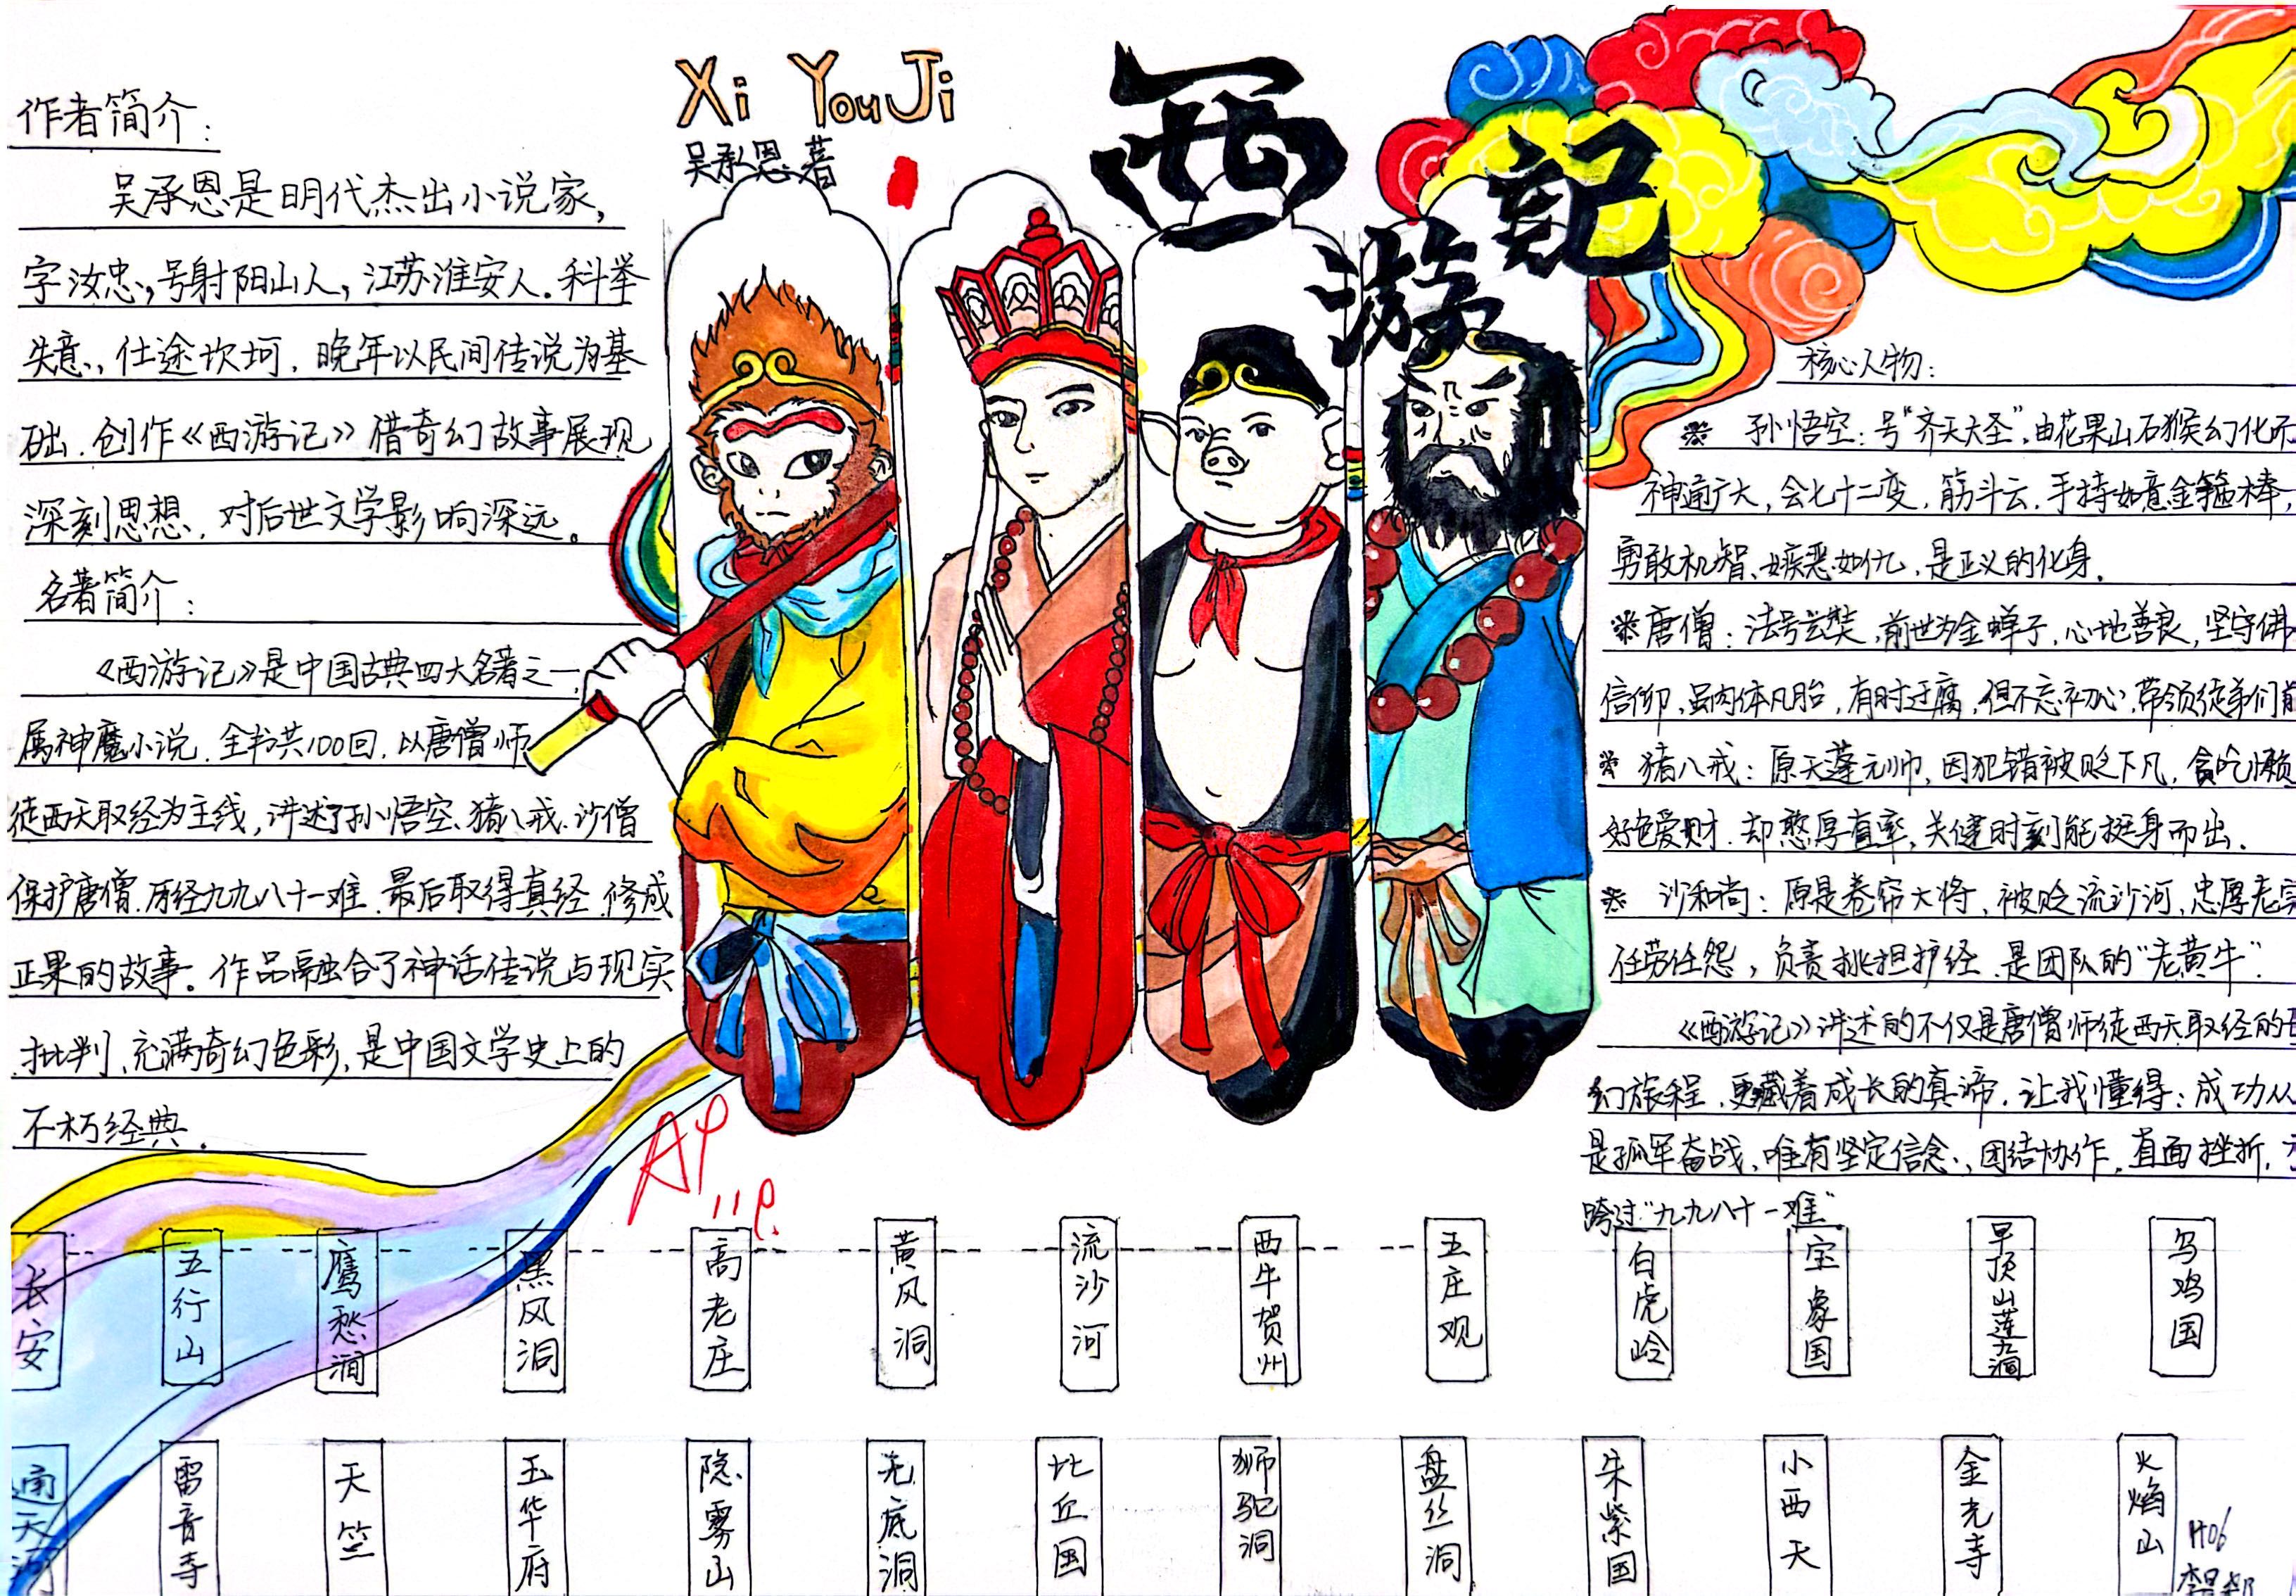 Xi You Ji
吴承恩著
西游记
作者简介：
吴承恩是明代杰出小说家，
字汝忠，号射阳山人，江苏淮安人。科举
失意，仕途坎坷，晚年以民间传说为基
础，创作《西游记》借奇幻故事展现
深刻思想，对后世文学影响深远。
名著简介：
《西游记》是中国古典四大名著之一，
属神魔小说，全书共100回，以唐僧师
徒西天取经为主线，讲述了孙悟空、猪八戒、沙僧
保护唐僧，历经九九八十一难，最后取得真经，修成
正果的故事。作品融合了神话传说与现实
批判，充满奇幻色彩，是中国文学史上的
不朽经典。
核心人物：
孙悟空：号“齐天大圣”，由花果山石猴幻化
神通广大，会七十二变，筋斗云，手持如意金箍棒，
勇敢机智、嫉恶如仇，是正义的化身。
唐僧：法号玄奘，前世为金蝉子，心地善良，坚守佛
信仰，虽肉体凡胎，有时迂腐，但不忘初心，带领徒弟们前
猪八戒：原天蓬元帅，因犯错被贬下凡，贪吃懒
好色爱财，却憨厚直率，关键时刻能挺身而出。
沙和尚：原是卷帘大将，被贬流沙河，忠厚老实
任劳任怨，负责挑担护经，是团队的“老黄牛”.
《西游记》讲述的不仅是唐僧师徒西天取经的
幻旅程，更藏着成长的真谛，让我懂得：成功从
是孤军奋战，唯有坚定信念、团结协作，直面挫折，
跨过“九九八十一难”
长安
五行山
鹰愁涧
黑风洞
高老庄
黄风洞
流沙河
西牛贺州
五庄观
白虎岭
宝象国
平顶山莲花洞
乌鸡国
通天河
雷音寺
天竺
玉华府
隐雾山
无底洞
比丘国
狮驼洞
盘丝洞
朱紫国
小西天
金光寺
火焰山